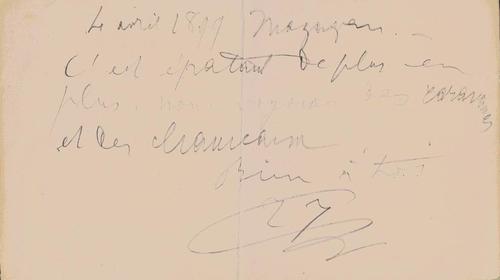 4 avril 1899 Mazagan. _
C'est épatant de plus en
plus. nous voyons des caravanes
et des chameaux
Bien à toi